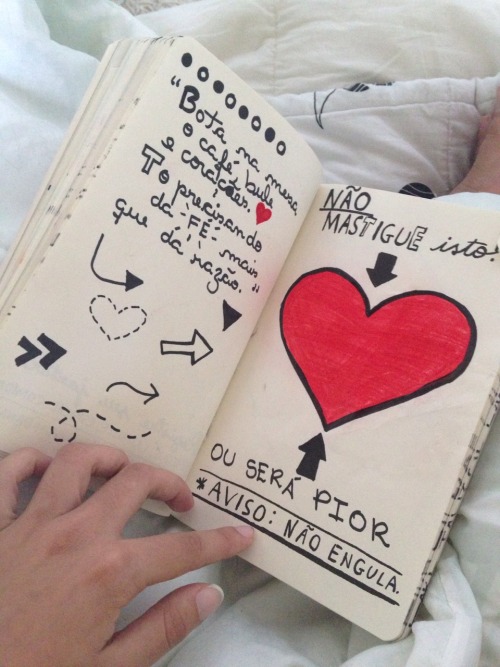 "Bota na mesa
o café, bule
e corações.
To precisando
da -FÉ- mais
que da razão."
NÃO
MASTIGUE isto!
OU SERÁ PIOR
* AVISO: NÃO ENGULA.